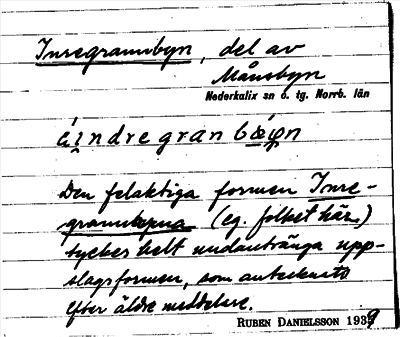 Inregrannbyn, del av
Månsbyn
Nederkalix sn o. tg. Norrb. län
Den felaktiga formen Inre-
grannbyna (eg. folket här)
tyckes helt undantränga upp-
slagsformen, som antecknats
efter äldre meddelare.
RUBEN DANIELSSON 1939